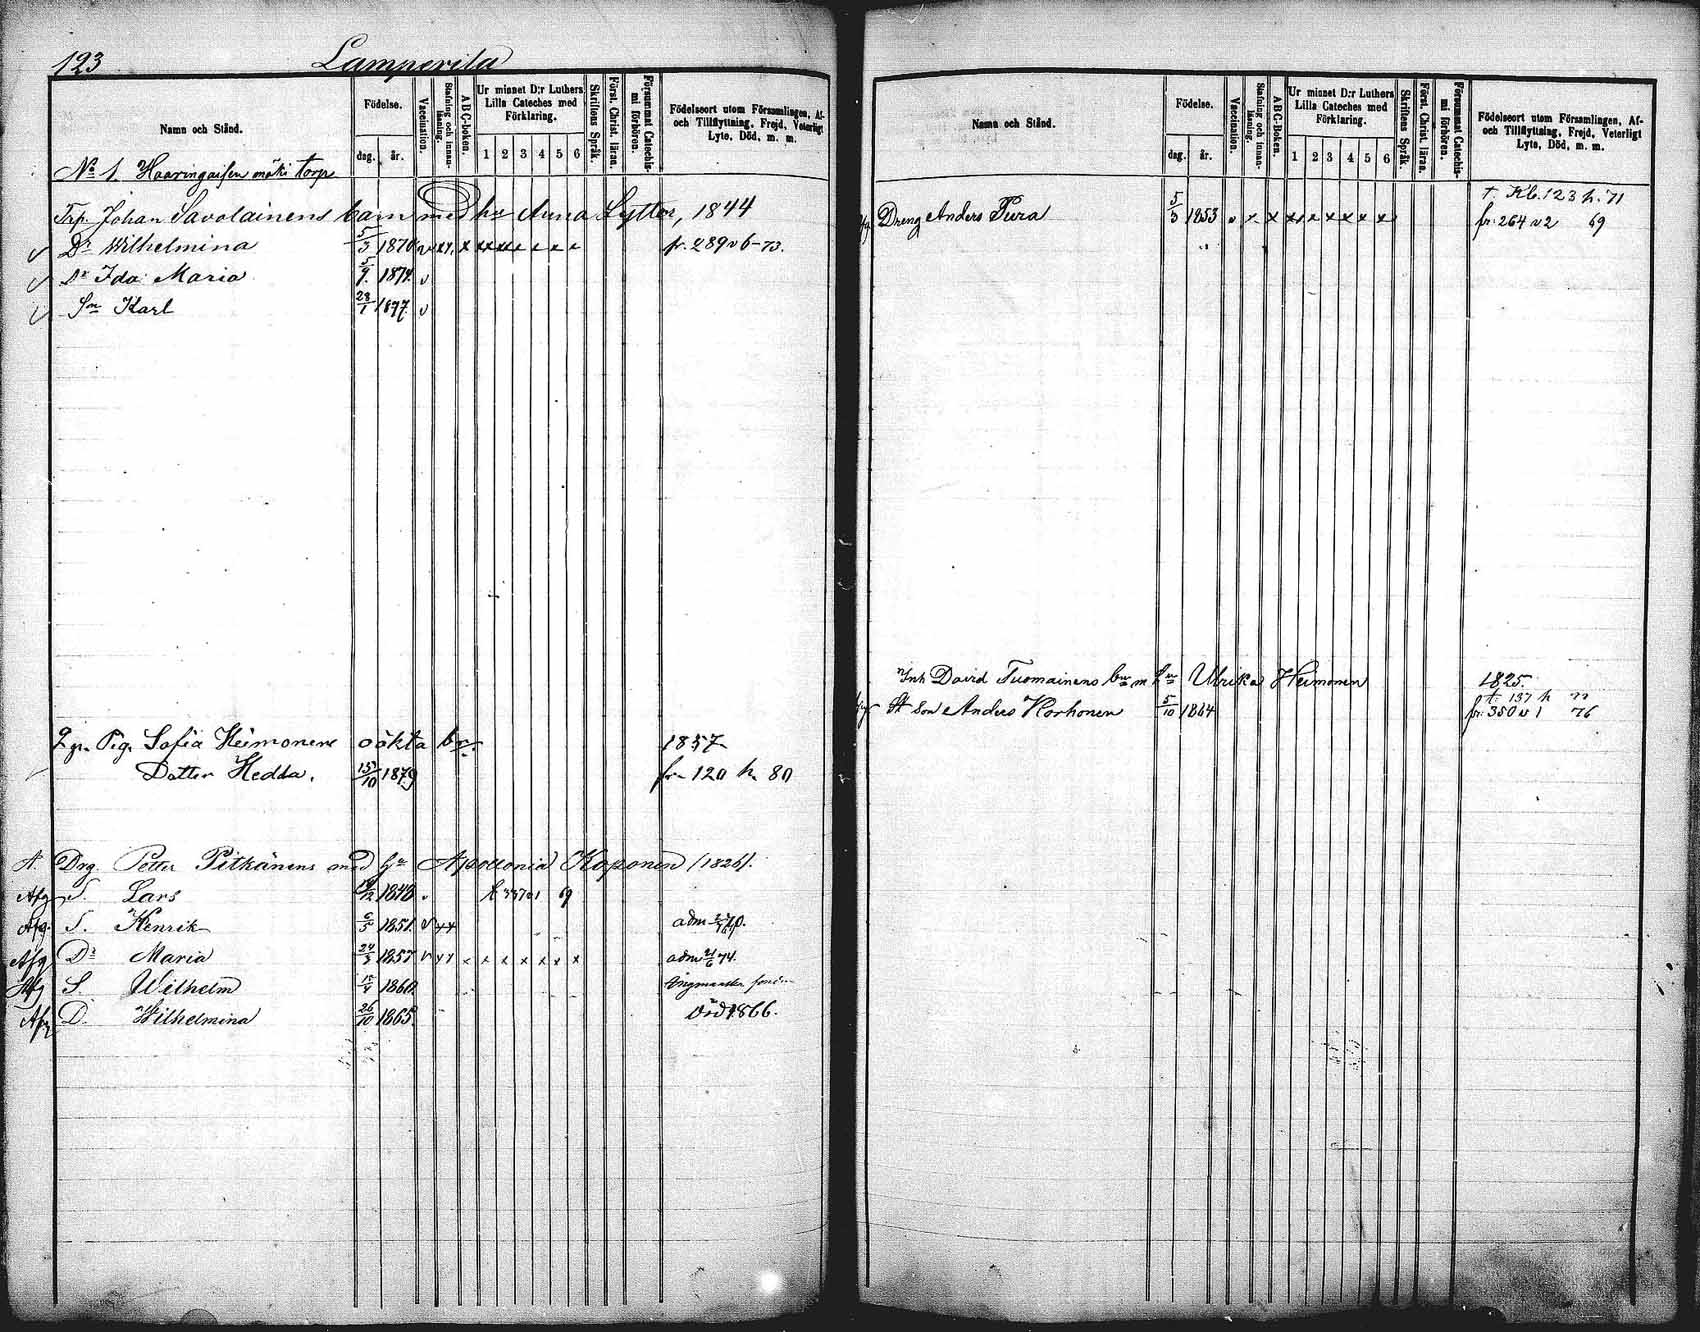 123 Lamperila
Namn och Stånd.
Födelse.
dag. år.
Vaccination.
Stafning och innanläsning.
A B C-boken.
Ur minnet D:r Luthers Lilla Cateches med Förklaring.
1 2 3 4 5 6
Skriftens Språk.
Först. Christ. läran.
Försummat Catechismi förhören.
Födelseort utom Församlingen, Af- och Tillflyttning, Frejd, Veterligt Lyte, Död, m. m.
No 1. mäki torp
Trp. Johan Savolainens barn med hu Anna Lytter, 1844
Dr Wilhelmina 5/3 1870 v xx x xx xx x x x x fr. 289 v 6-73.
Dr Ida Maria 5/9. 1874. v
Sn Karl 28/1 1877. v
Pig. Sofia Heimonens oäkta br. 1857
Dotter Hedda. 15/10 1879 fr 120 h 80
Drg. Petter Pitkänens med hu Apollonia Koponen (1826).
Afg S. Lars /12 1848 v 69
Afg. S. Henrik 6/5 1851. v xx adm
Afg Dr Maria 24/3 1857 v xx x x x x x x x adm 21/6 74.
Afg S. Wilhelm 15/4 1860.
Afg D. Wilhelmina 26/10 1865. död 1866.
Namn och Stånd.
Födelse.
dag. år.
Vaccination.
Stafning och innanläsning.
A B C-Boken.
Ur minnet D:r Luthers Lilla Cateches med Förklaring.
1 2 3 4 5 6
Skriftens Språk.
Först. Christ. läran.
Försummat Catechismi förhören.
Födelseort utom Församlingen, Af- och Tillflyttning, Frejd, Veterligt Lyte, Död, m. m.
t. Kb. 123 h. 71
Dreng Anders Pura 5/3 1853 v x x x x x x x x fr. 264 v 2 69
Inh David Tuomainens bn m hu Ulrika Heimonen 1825.
t. 137 h 77
Son Anders Korhonen 5/10 1864 fr. 350 v 1 76